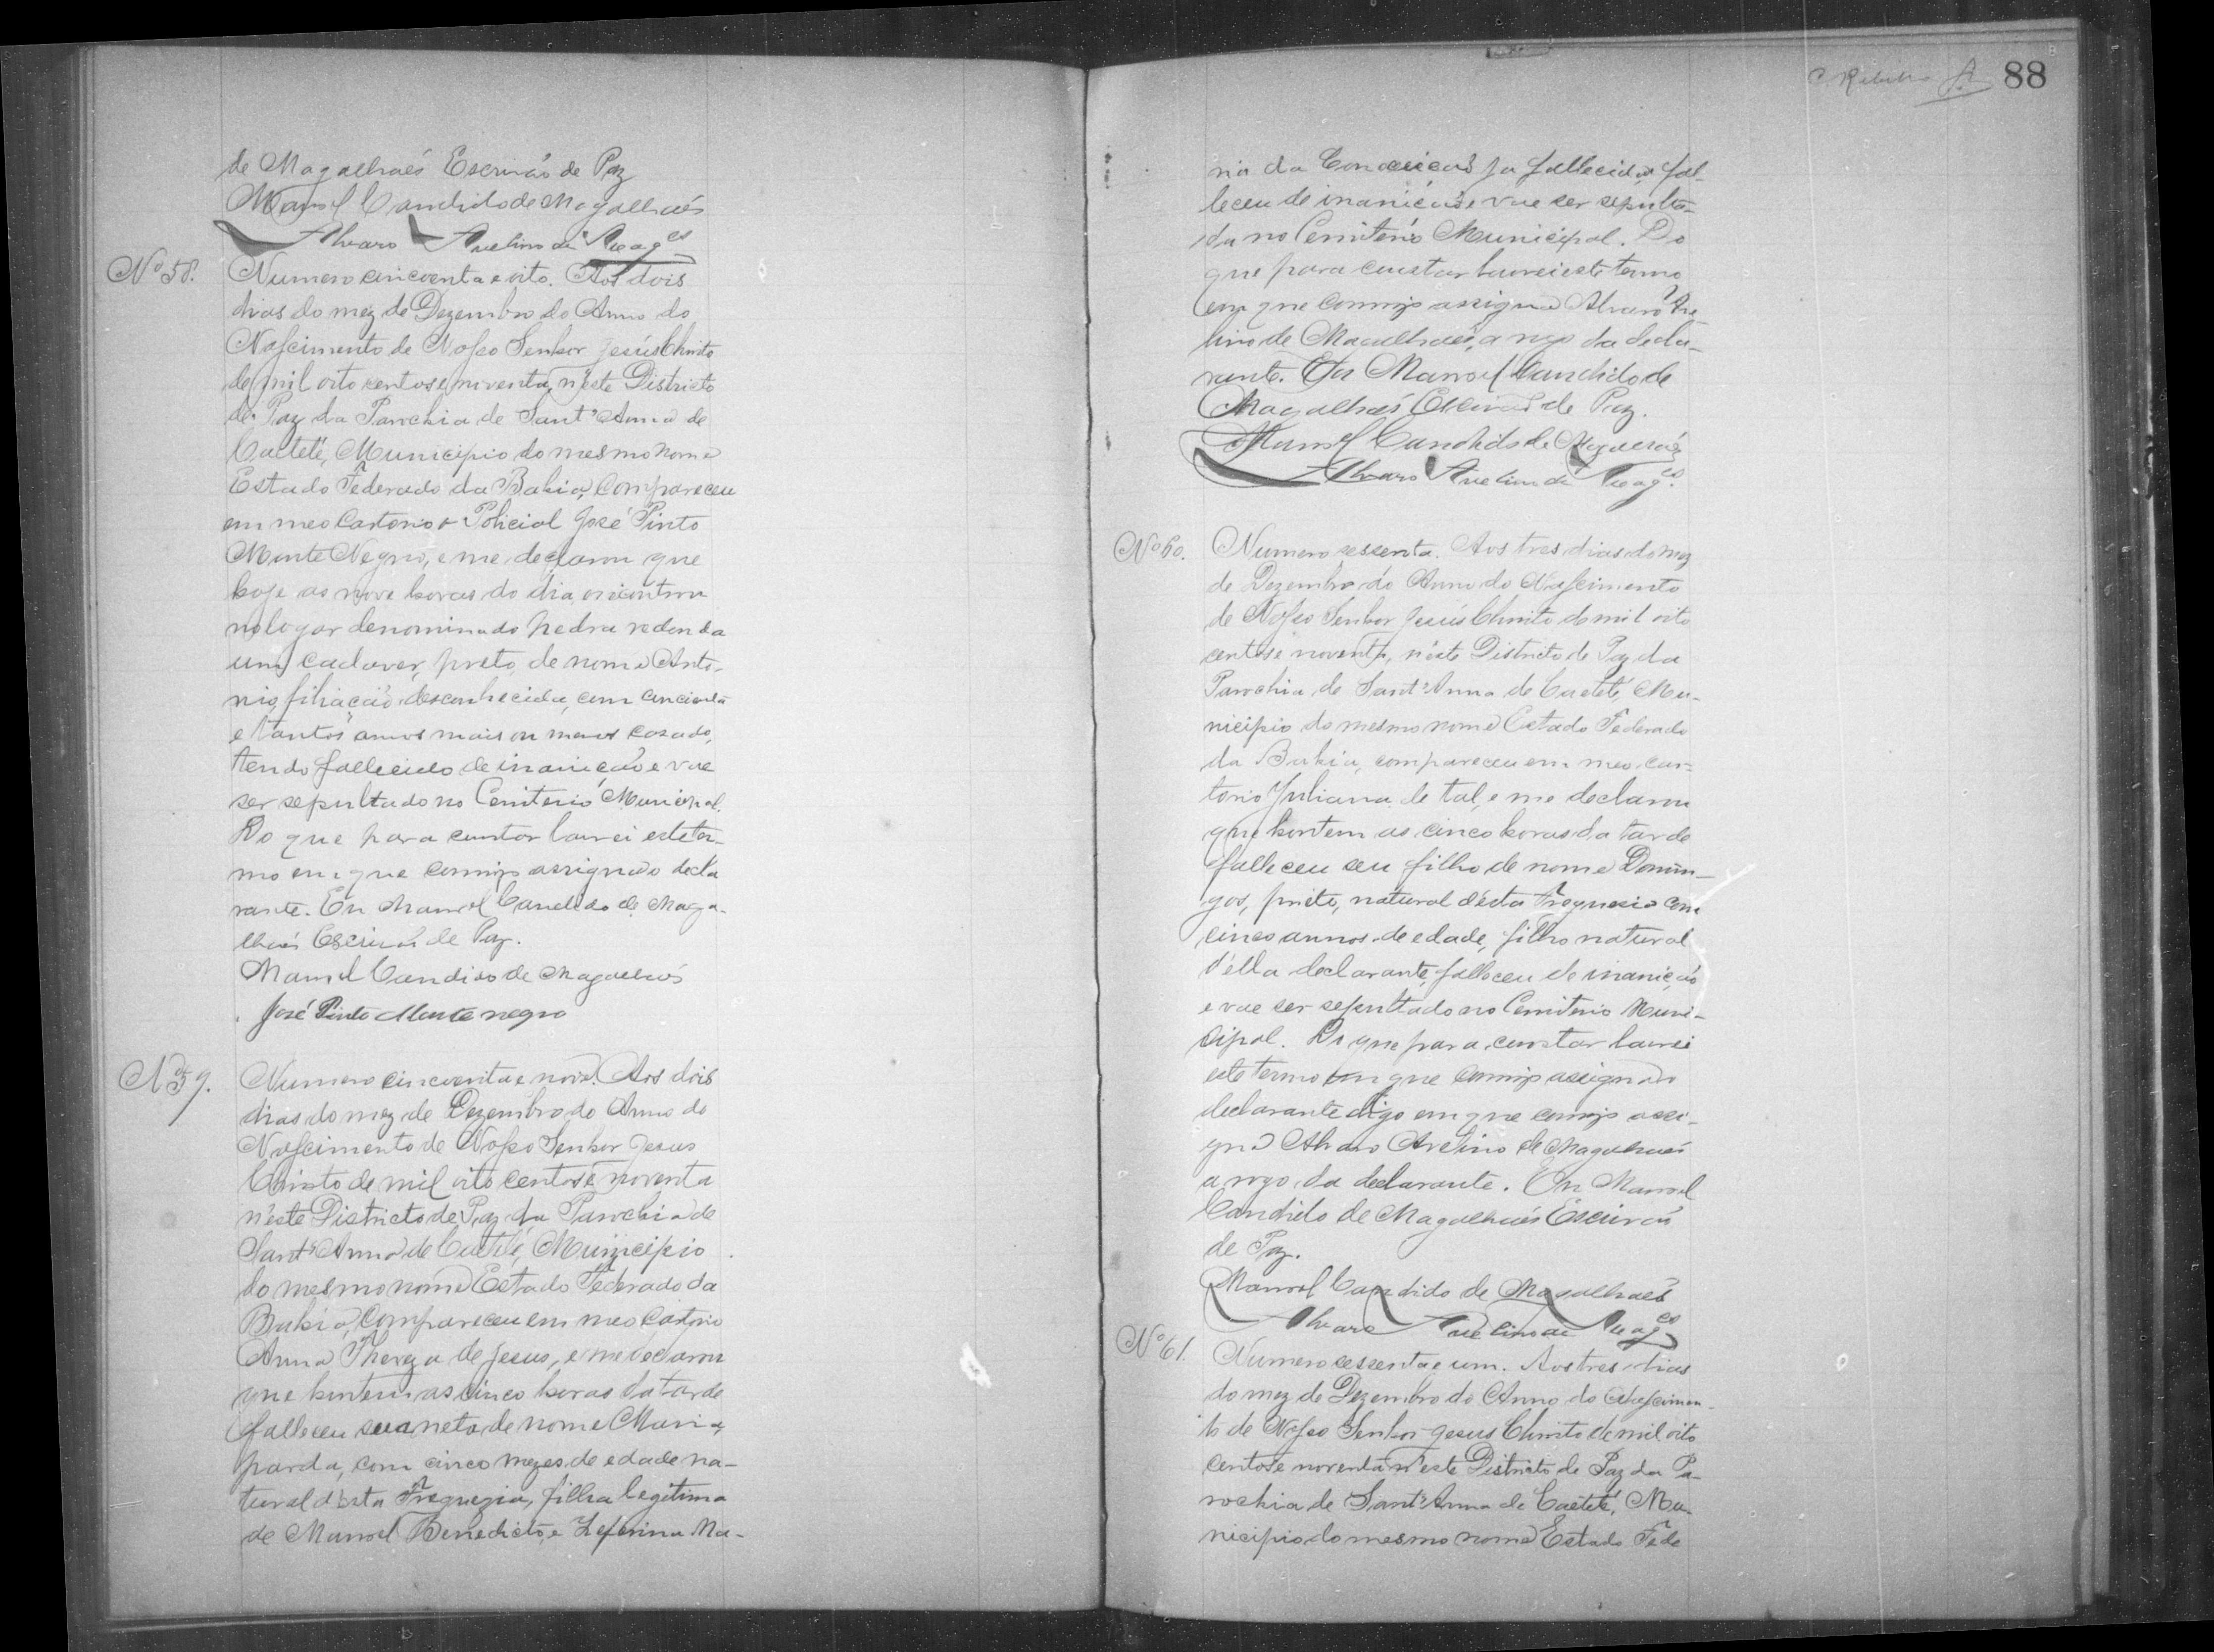 de Magalhaés Escrivaõ de Paz
Manoel Candido de Magalhaés
Alvaro Avelino de Mag.es
Nº 58.
Numero cincoenta e oito. Aos dois
dias do mez de Dezembro do Anno do
Nascimento de Nosso Senhor Jesús Christo
de mil oito centos e noventa, n'este Districto
de Paz da Parochia de Sant'Anna de
Caeteté, Municipio do mesmo nome
Estado Federado da Bahia, compareceu
em meo Cartorio o Policial José Pinto
Monte Negro, e me declarou que
hoje as nove horas do dia, encontrou
no logar denominado pedra redonda
um cadaver, preto, de nome Anto-
nio, filiação desconhecida, com cincoenta
e tantos annos mais ou menos casado,
tendo fallecido de inanição e vae
ser sepultado no Cemiterio Municipal.
Do que para constar lavrei este ter-
mo em que comigo assigna o decla
rante. Eu Manoel Candido de Maga-
lhaés Escrivaõ de Paz.
Manoel Candido de Magalhaés
José Pinto Monte negro
Nº 59.
Numero cincoenta e nove. Aos dois
dias do mez de Dezembro do Anno do
Nascimento de Nosso Senhor Jesus
Christo de mil oito centos e noventa
n'este Districto de Paz da Parochia de
Sant'Anna de Caeteté, Municipio
do mesmo nome Estado Federado da
Bahia, compareceu em meo Cartorio
Anna Thereza de Jesus, e me declarou
que hontem as cinco horas da tarde
falleceu sua neta de nome Maria,
parda, com cinco mezes de edade na-
tural d'esta Freguezia, filha legitima
de Manoel Benedicto, e Zeferina Ma-
88
ria da Conceiçaõ ja fallecida, fal-
leceu de inanição e vae ser sepulta-
da no Cemiterio Municipal. Do
que para constar lavrei este termo
em que comigo assigna Alvaro Ave
lino de Magalhaés, a rogo da decla-
rante. Eu Manoel Candido de
Magalhaés Escrivaõ de Paz.
Manoel Candido de Magalhaés
Alvaro Avelino de Mag.es
Nº 60.
Numero sessenta. Aos tres dias do mez
de Dezembro do Anno do Nascimento
de Nosso Senhor Jesús Christo de mil oito
centos e noventa, n'este Districto de Paz da
Parochia de Sant'Anna de Caeteté Mu-
nicipio do mesmo nome Estado Federado
da Bahia, compareceu em meo car-
torio Juliana de tal, e me declarou
que hontem as cinco horas da tarde
falleceu seu filho de nome Domin-
gos, preto, natural d'esta Freguesia com
cinco annos de edade, filho natural
d'ella declarante, falleceu de inanição
e vae ser sepultado no Cemiterio Muni-
cipal. Do que para constar lavrei
este termo em que comigo assigna o
declarante digo em que comigo assi-
gna Alvaro Avelino de Magalhaés
a rogo da declarante. Eu Manoel
Candido de Magalhaés Escrivaõ
de Paz.
Manoel Candido de Magalhaés
Alvaro Avelino de Mag.es
Nº 61.
Numero sessenta e um. Aos tres dias
do mez de Dezembro do Anno do Nascimen-
to de Nosso Senhor Jesus Christo de mil oito
centos e noventa n'este Districto de Paz da Pa-
rochia de Sant'Anna de Caeteté, Mu-
nicipio do mesmo nome Estado Fede